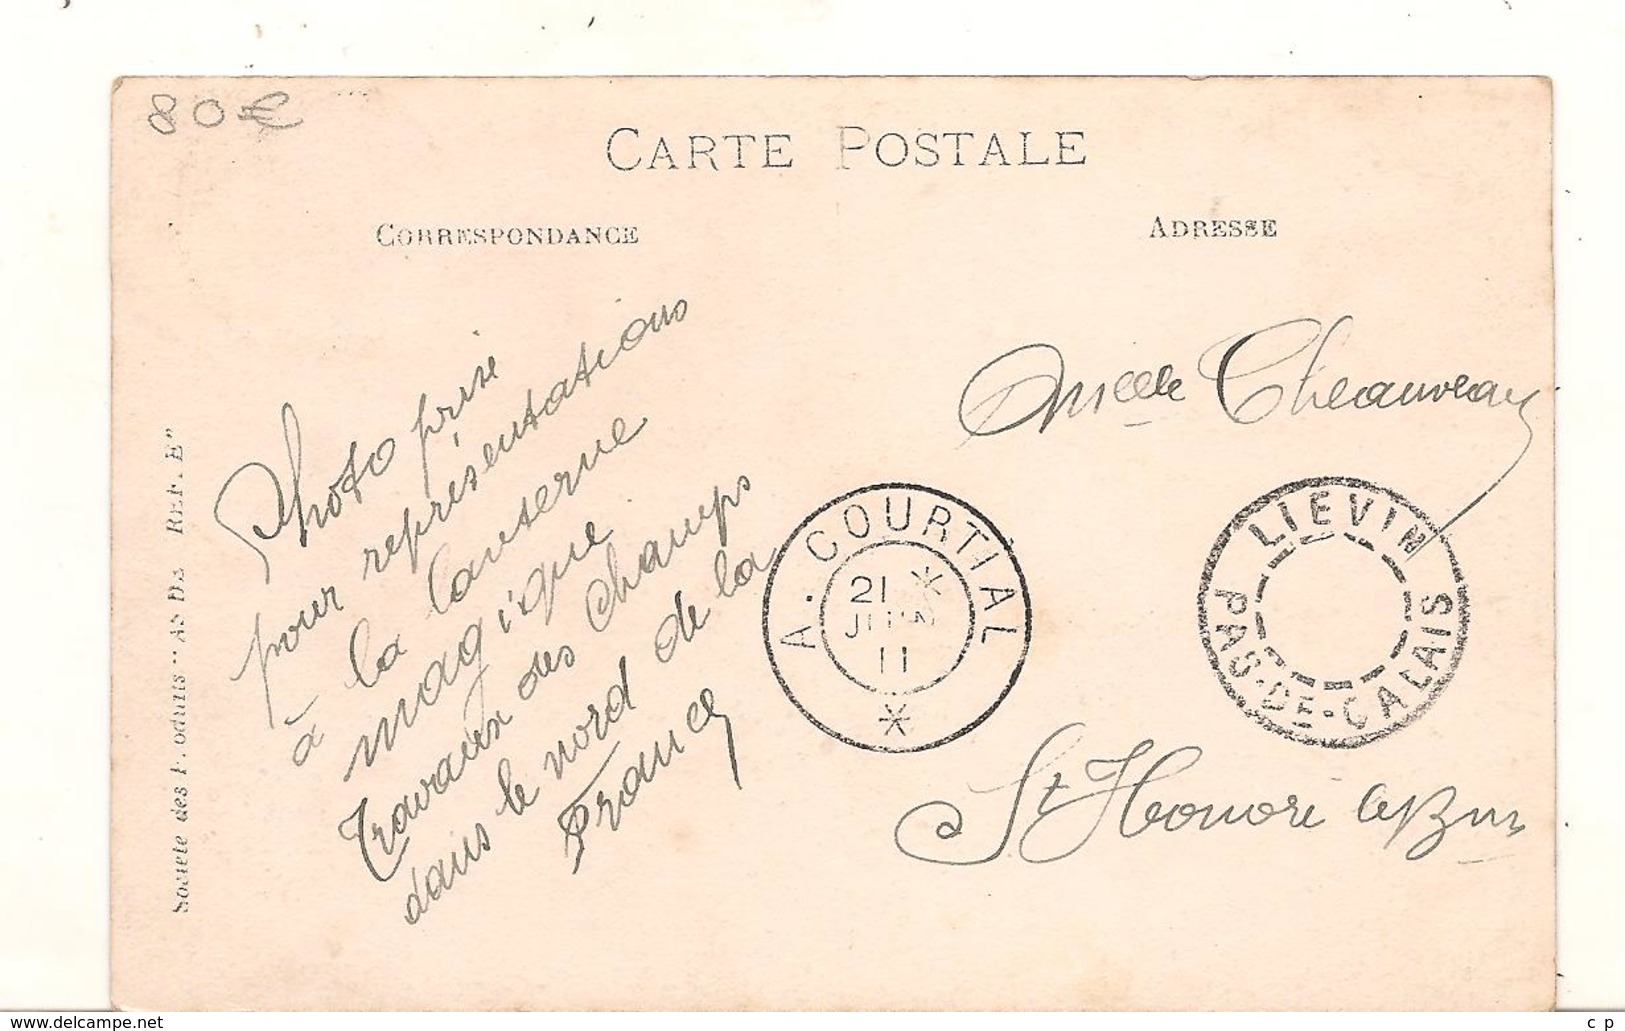 80€
CARTE POSTALE
CORRESPONDANCE
ADRESSE
Photo prise
pour représentations
à la lanterne
magique
Travaux des champs
dans le nord de la
France
Melle Cheauveau
St Honoré les Bns
A. COURTIAL
21 *
JUIN
11
*
LIEVIN
PAS-DE-CALAIS
Société des Produits "AS DE
www.delcampe.net
c p